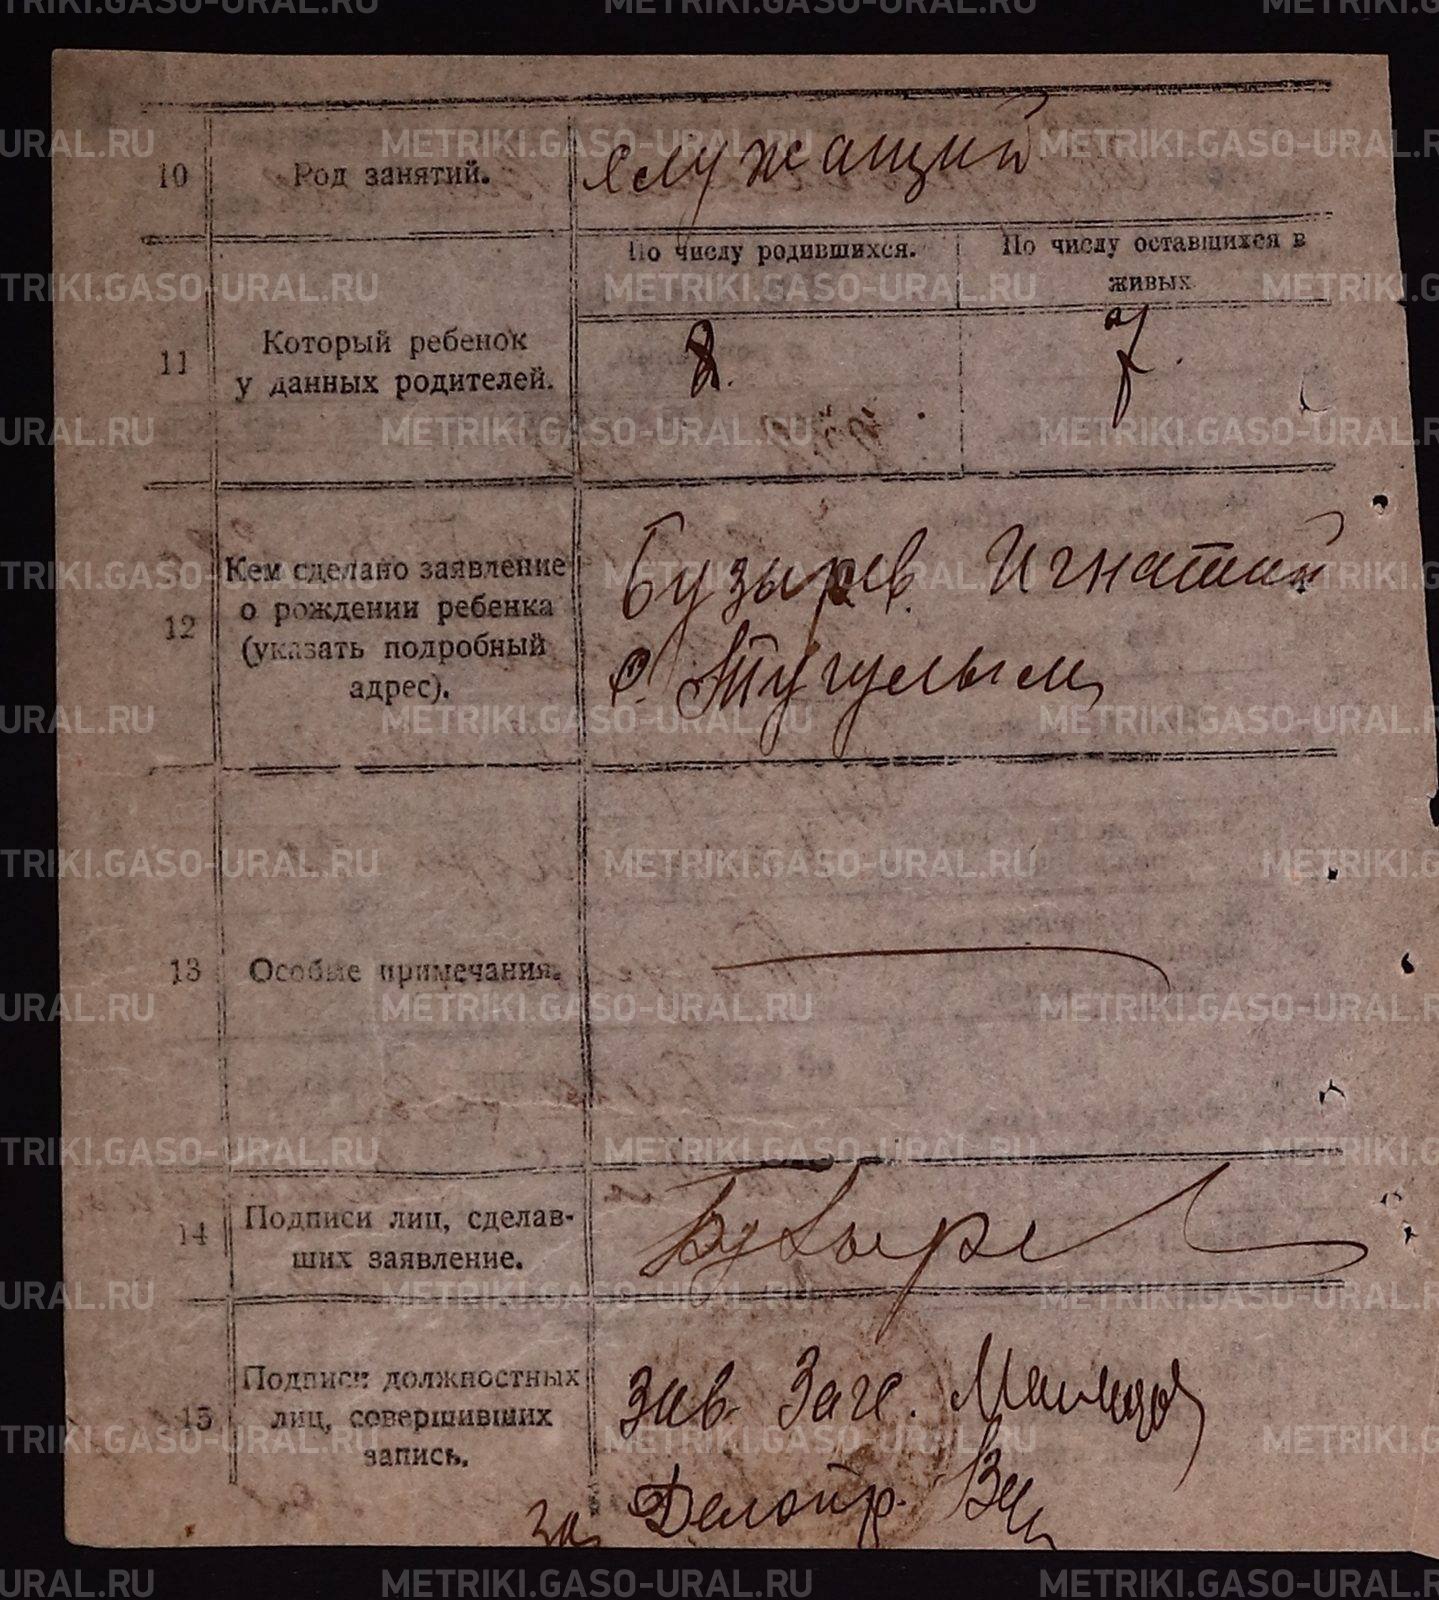 10
Род занятий.
служащий
11
Который ребенок
у данных родителей.
По числу родившихся.
По числу оставшихся в
живых
8.
7.
12
Кем сделано заявление
о рождении ребенка
(указать подробный
адрес).
Бузырев. Игнатий
с. Тугулым
13
Особые примечания.
14
Подписи лиц, сделав-
ших заявление.
15
Подписи должностных
лиц, совершивших
запись.
Зав. Загс.
за Делопр.
METRIKI.GASO-URAL.RU